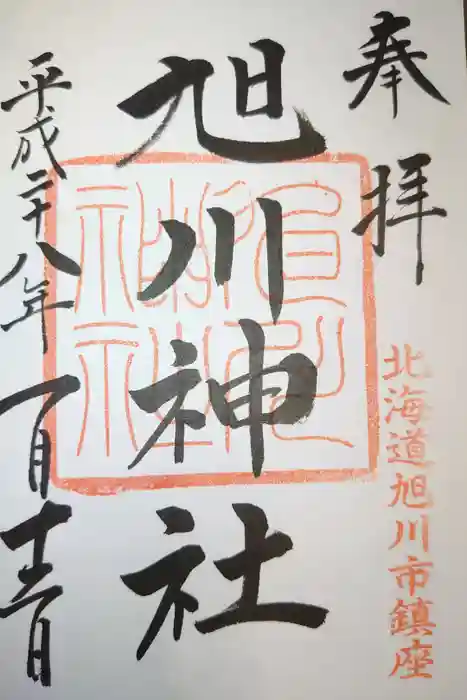 奉拝
北海道旭川市鎮座
旭川神社
平成二十八年一月十三日